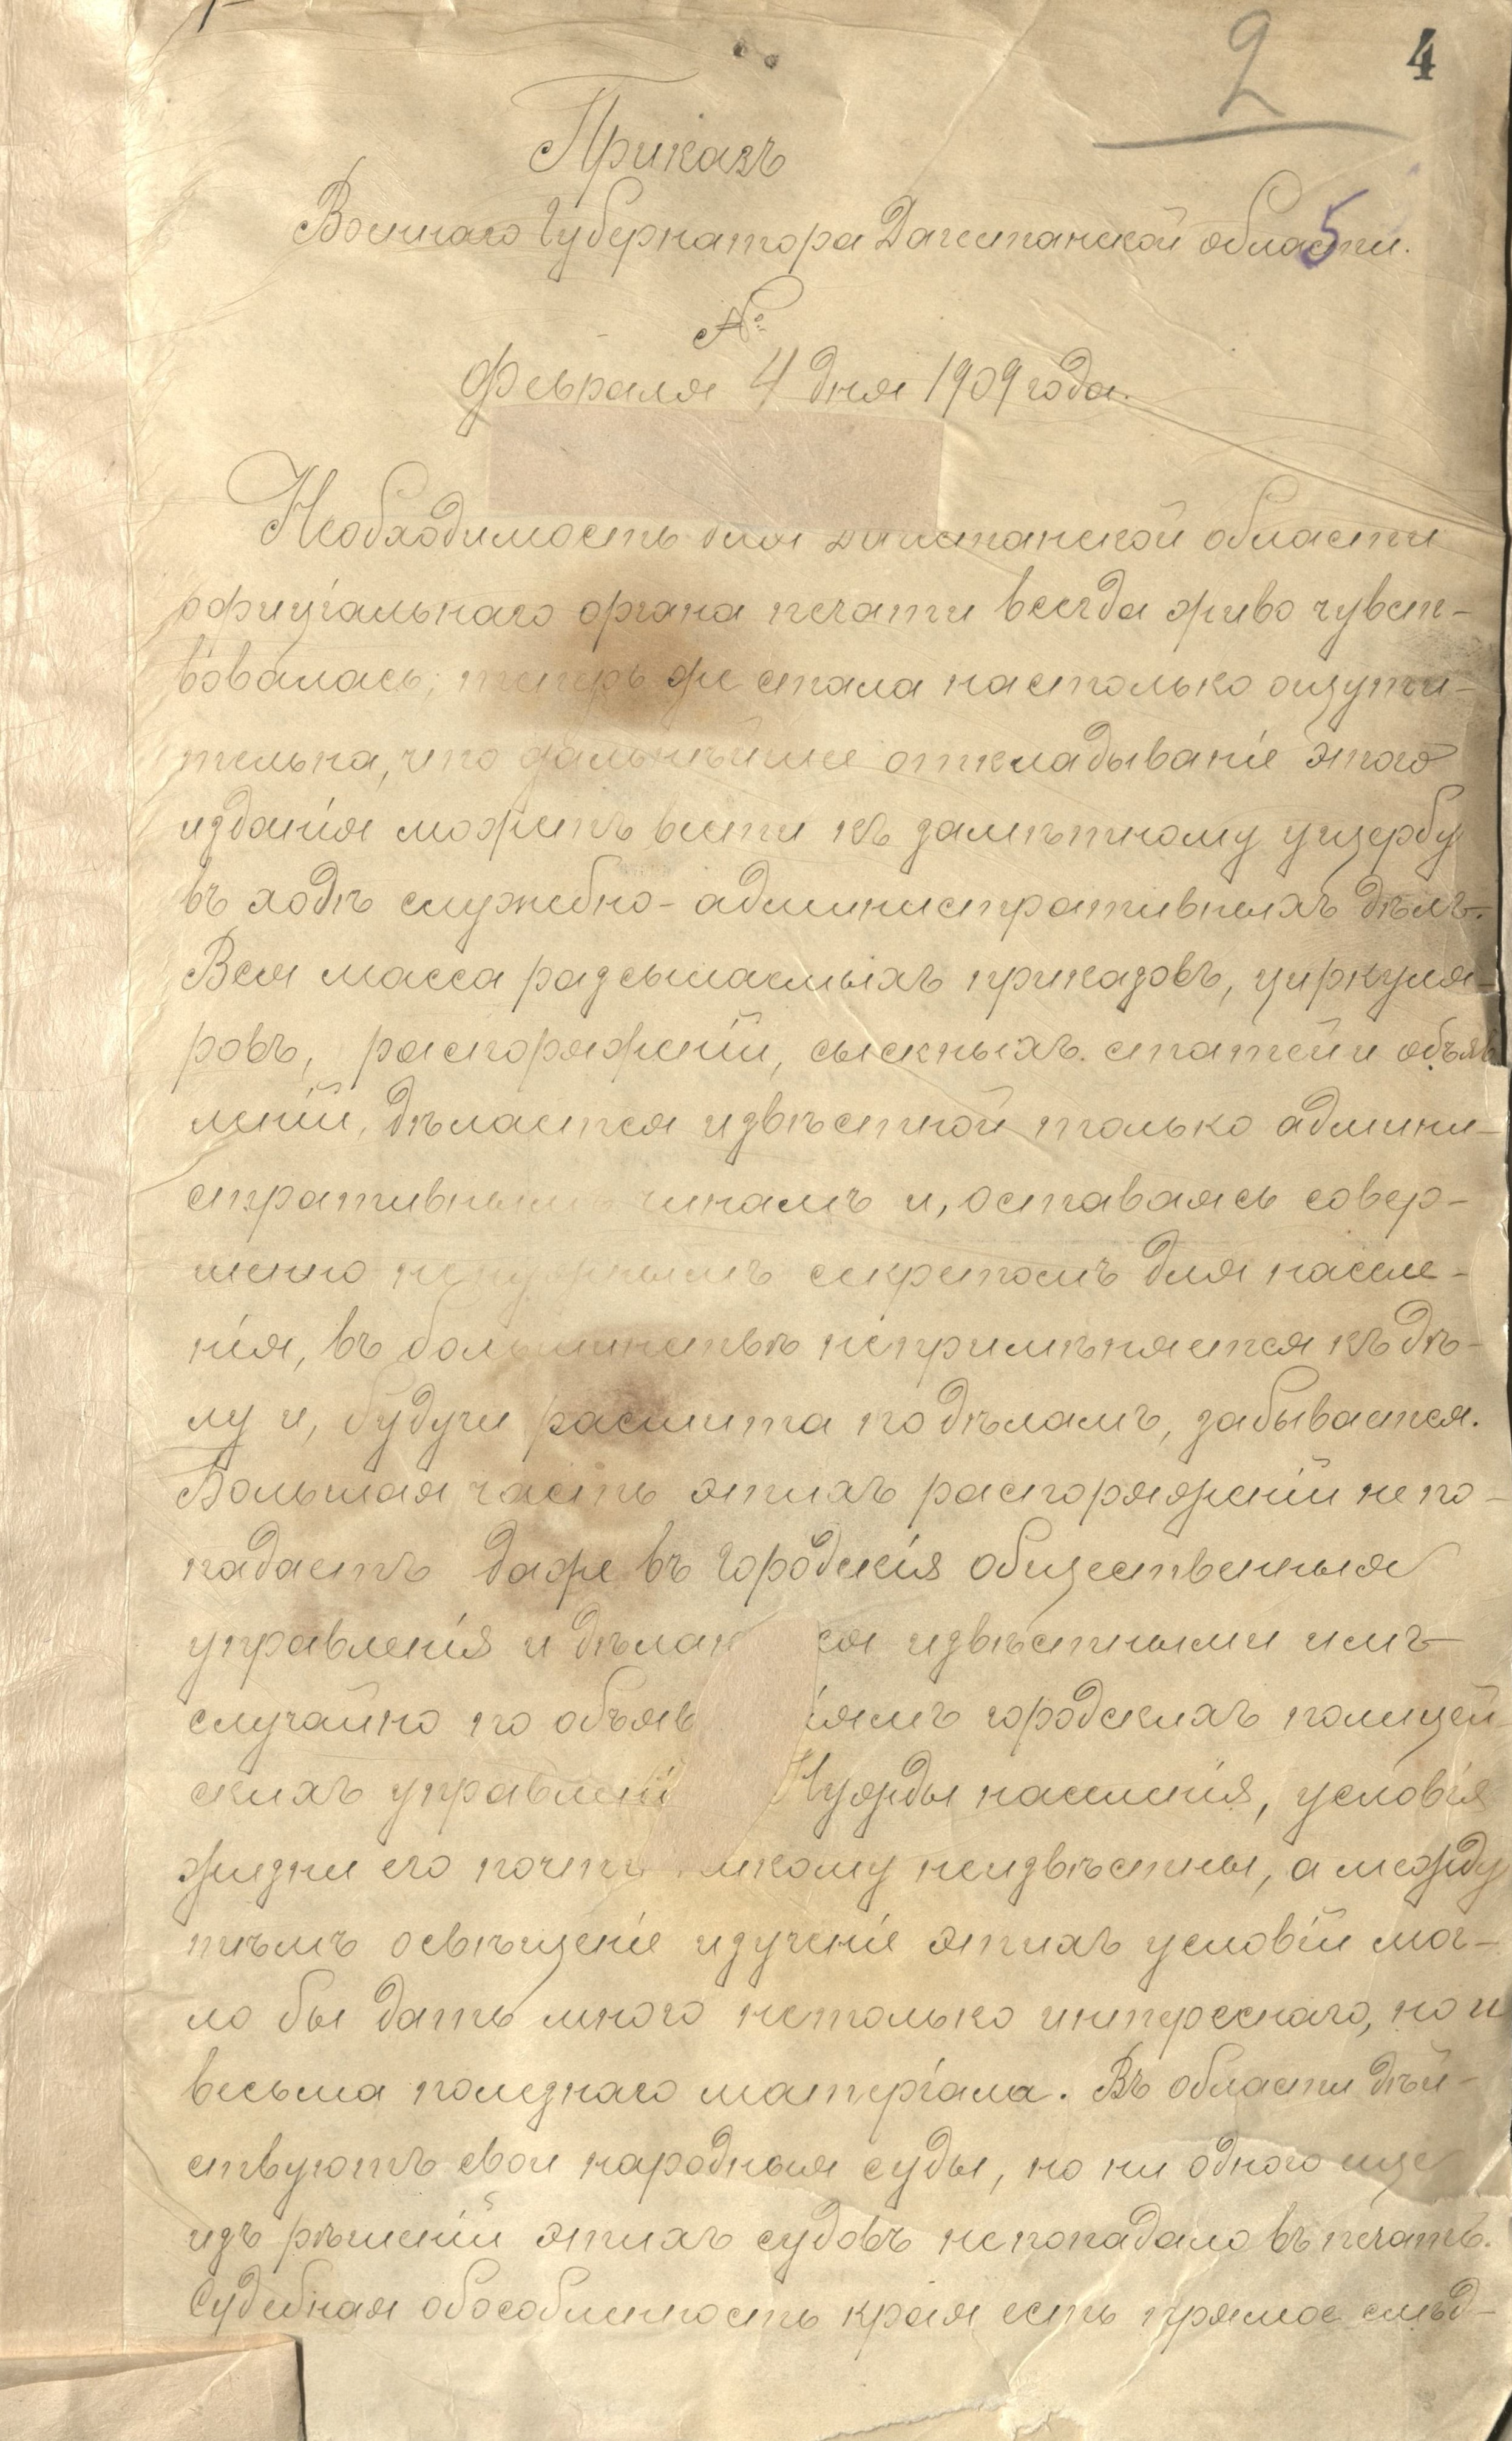 2
4
Приказъ
Военнаго Губернатора Дагестанской области.
5
№
Февраля 4 дня 1909 года.
Необходимость для Дагестанской области
офиціальнаго органа печати всегда живо чувст-
вовалась; теперь же стала настолько ощути-
тельна, что дальнѣйшее откладываніе этого
изданія можетъ вести къ замѣтному ущербу
въ ходѣ служебно-административныхъ дѣлъ.
Вся масса разсылаемыхъ приказовъ, циркуля-
ровъ, распоряженій, сыскныхъ статей и объяв
леній, дѣлается извѣстной только админи-
стративнымъ чинамъ и, оставаясь совер-
шенно ненужнымъ секретомъ для населе-
нія, въ большинствѣ непримѣняется къ дѣ-
лу и, будучи расшита по дѣламъ, забывается.
Большая часть этихъ распоряженій не по-
падаетъ даже въ городскія общественныя
управленія и дѣлаю ся извѣстными имъ
случайно по объяв іямъ городскихъ полицей-
скихъ управлені Нужды населенія, условія
жизни его почти никому неизвѣстны, а между
тѣмъ освѣщеніе изученіе этихъ условій мог-
ло бы дать много нетолько интереснаго, но и
весьма полезнаго матеріала. Въ области дѣй-
ствуютъ свои народныя суды, но ни одного еще
изъ рѣшеній этихъ судовъ непопадало въ печать.
Судебная обособленность края есть прямое слѣд-